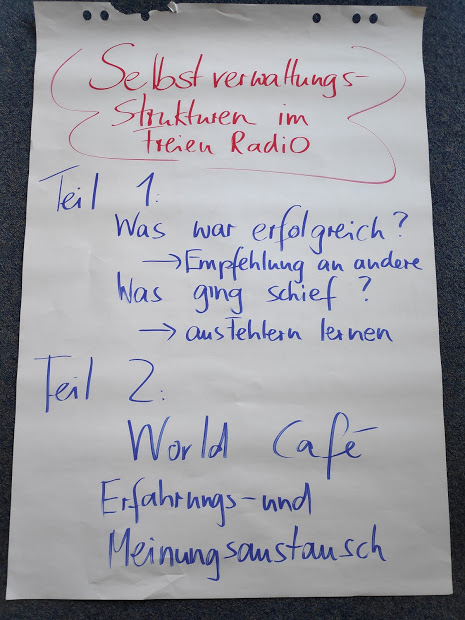 Selbstverwaltungs-
Strukturen im
freien Radio
Teil 1:
Was war erfolgreich?
→ Empfehlung an andere
Was ging schief?
→ aus Fehlern lernen
Teil 2:
World Café
Erfahrungs- und
Meinungsaustausch